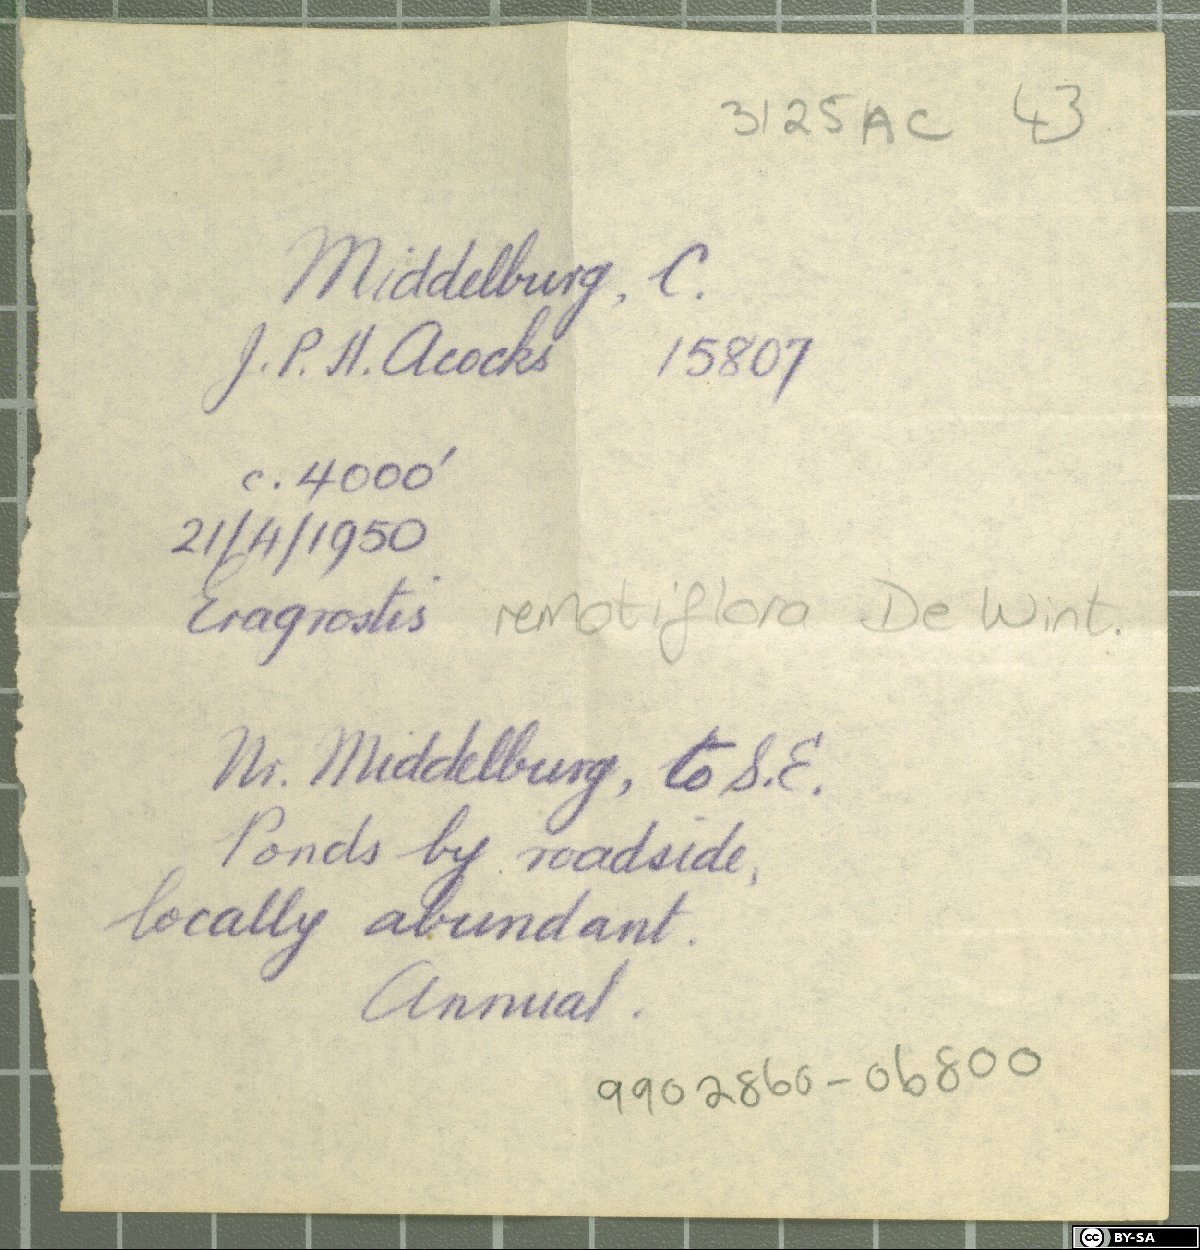 3125AC 43
Middelburg, C.
J.P.H. Acocks 15807
c. 4000'
21/4/1950
Eragrostis remotiflora De Wint.
Nr. Middelburg, to S.E.
Ponds by roadside,
locally abundant.
Annual.
9902860-06800
cc BY-SA